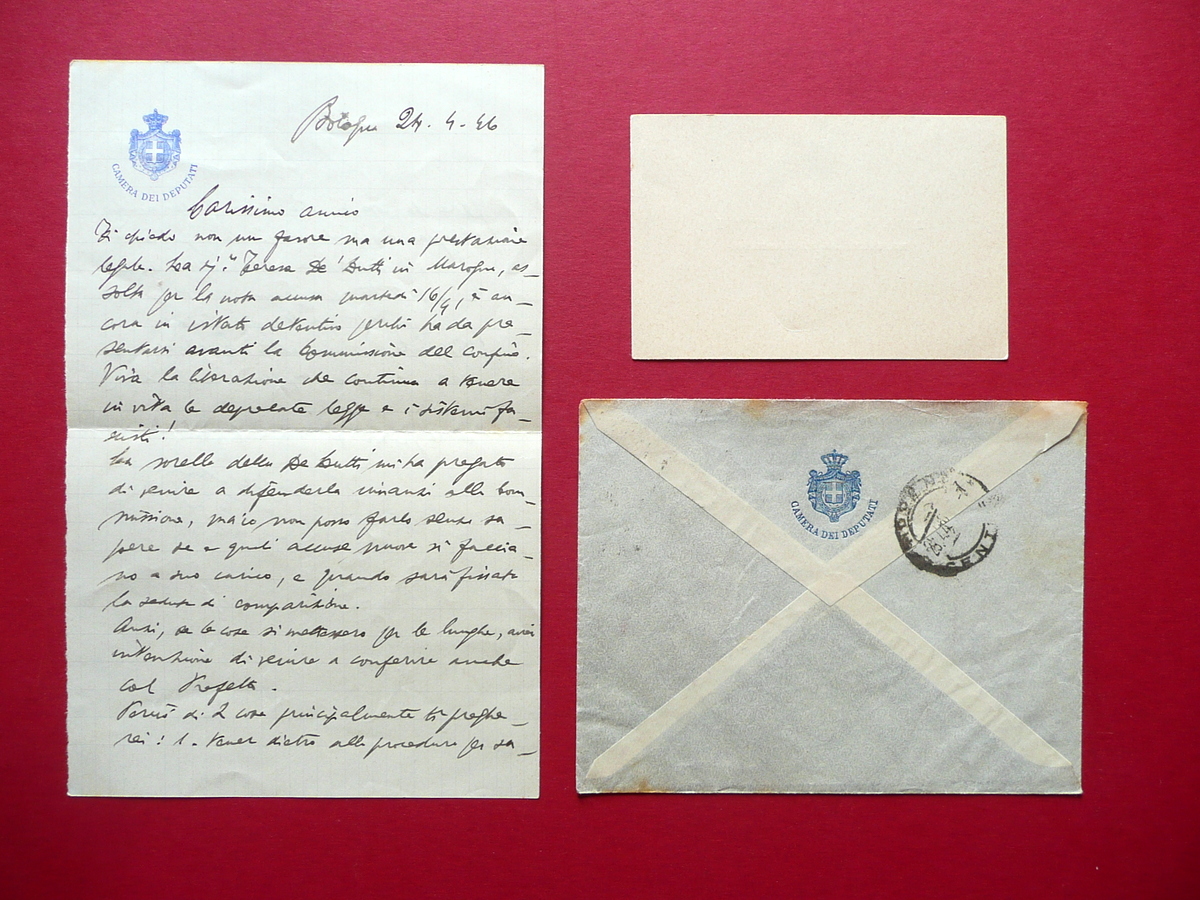 CAMERA DEI DEPUTATI
Bologna 24. 4. 46
Carissimo amico
Ti chiedo non un favore ma una prestazione
legale. La sig.ª Teresa De' in, as_
solta per la nota accusa martedì 16/4, è an_
cora in istato detentivo perché ha da pre_
sentarsi avanti la Commissione del confino.
Viva la liberazione che continua a tenere
in vita le deprecate leggi e i sistemi fa_
scisti!
La sorella della De mi ha pregato
di venire a difenderla innanzi alla Com_
missione, ma io non posso farlo senza sa_
pere se e quali accuse nuove si faccia_
no a suo carico, e quando sarà fissata
la seduta di comparizione.
Anzi, se le cose si mettessero per le lunghe, avrei
intenzione di venire a conferire anche
col Prefetto.
Perciò di 2 cose principalmente ti preghe_
rei: 1. tener dietro alla procedura per sa_
CAMERA DEI DEPUTATI